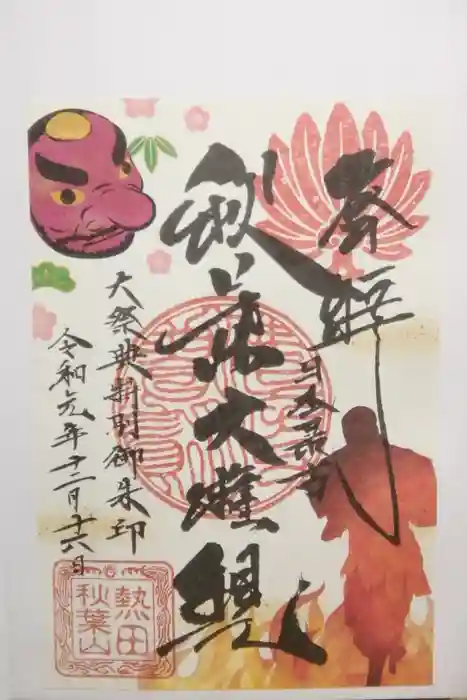 奉拝
日本最古
秋葉大権現
大祭典特別御朱印
令和元年十二月十六日
熱田
秋葉山